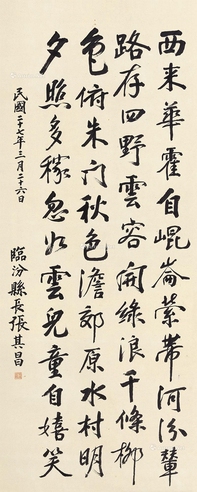 西来華霍自崐崙縈帶河汾輦
路存四野雲容開綠浪千條柳
色俯朱门秋色澹郊原水村明
夕照多稼忽如雲兒童自嬉笑
民國二十七年三月二十六日
臨汾縣長張其昌